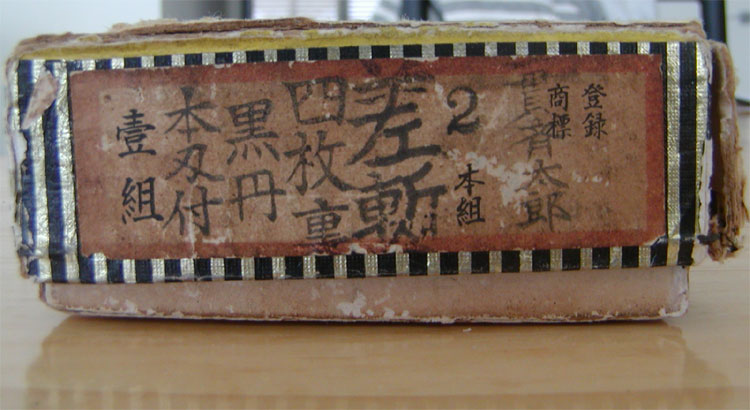 登録
商標
太郎
2本組
差斬
四枚重
黒丹
本刃付
壹組